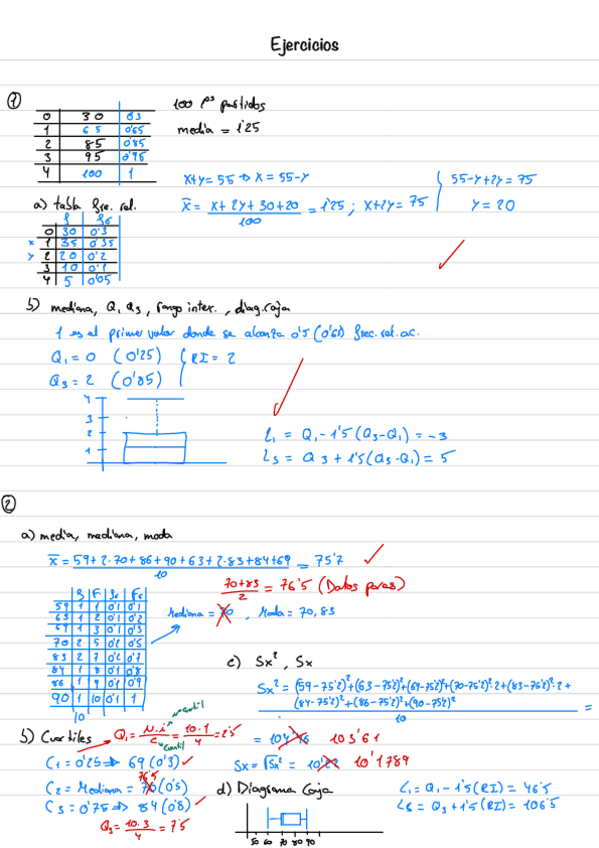 Ejercicios
1
100 ptos partidos
media = 1'25
0 30 0'3
1 65 0'65
2 85 0'85
3 95 0'95
4 100 1
x+y = 55 ⇒ x = 55-y
55-y+2y = 75
x̄ = x + 2y + 30 + 20 / 100 = 1'25 ; x+2y = 75
y = 20
a) tabla frec. rel.
f fr
0 30 0'3
x 1 35 0'35
y 2 20 0'2
3 10 0'1
4 5 0'05
b) mediana, Q1 Q3, rango inter., diag. caja
1 es el primer valor donde se alcanza 0'5 (0'65) frec. rel. ac.
Q1 = 0 (0'25) RI = 2
Q3 = 2 (0'85)
4
3
2
1
L1 = Q1 - 1'5 (Q3-Q1) = -3
L3 = Q3 + 1'5 (Q3-Q1) = 5
2
a) media, mediana, moda
x̄ = 59 + 2·70 + 86 + 90 + 63 + 2·83 + 84 + 69 / 10 = 75'7
70+83 / 2 = 76'5 (Datos pares)
f F fr Fr
59 1 1 0'1 0'1
63 1 2 0'1 0'2
69 1 3 0'1 0'3
70 2 5 0'2 0'5
83 2 7 0'2 0'7
84 1 8 0'1 0'8
86 1 9 0'1 0'9
90 1 10 0'1 1
10
Mediana = 70, Moda = 70, 83
c) Sx², Sx
Sx² = (59-75'2)² + (63-75'2)² + (69-75'2)² + (70-75'2)²·2 + (83-75'2)²·2 +
(84-75'2)² + (86-75'2)² + (90-75'2)²
10 =
= 103'61
Sx = √Sx² = 10'1789
b) Cuartiles Q1 = N·i / C = 10·1 / 4 = 2'5
cuartil
C1 = 0'25 ⇒ 69 (0'3)
76'5
C2 = Mediana = 70 (0'5)
C3 = 0'75 ⇒ 84 (0'8)
Q3 = 10·3 / 4 = 7'5
d) Diagrama Caja
50 60 70 80 90
L1 = Q1 - 1'5 (RI) = 46'5
Ls = Q3 + 1'5 (RI) = 106'5